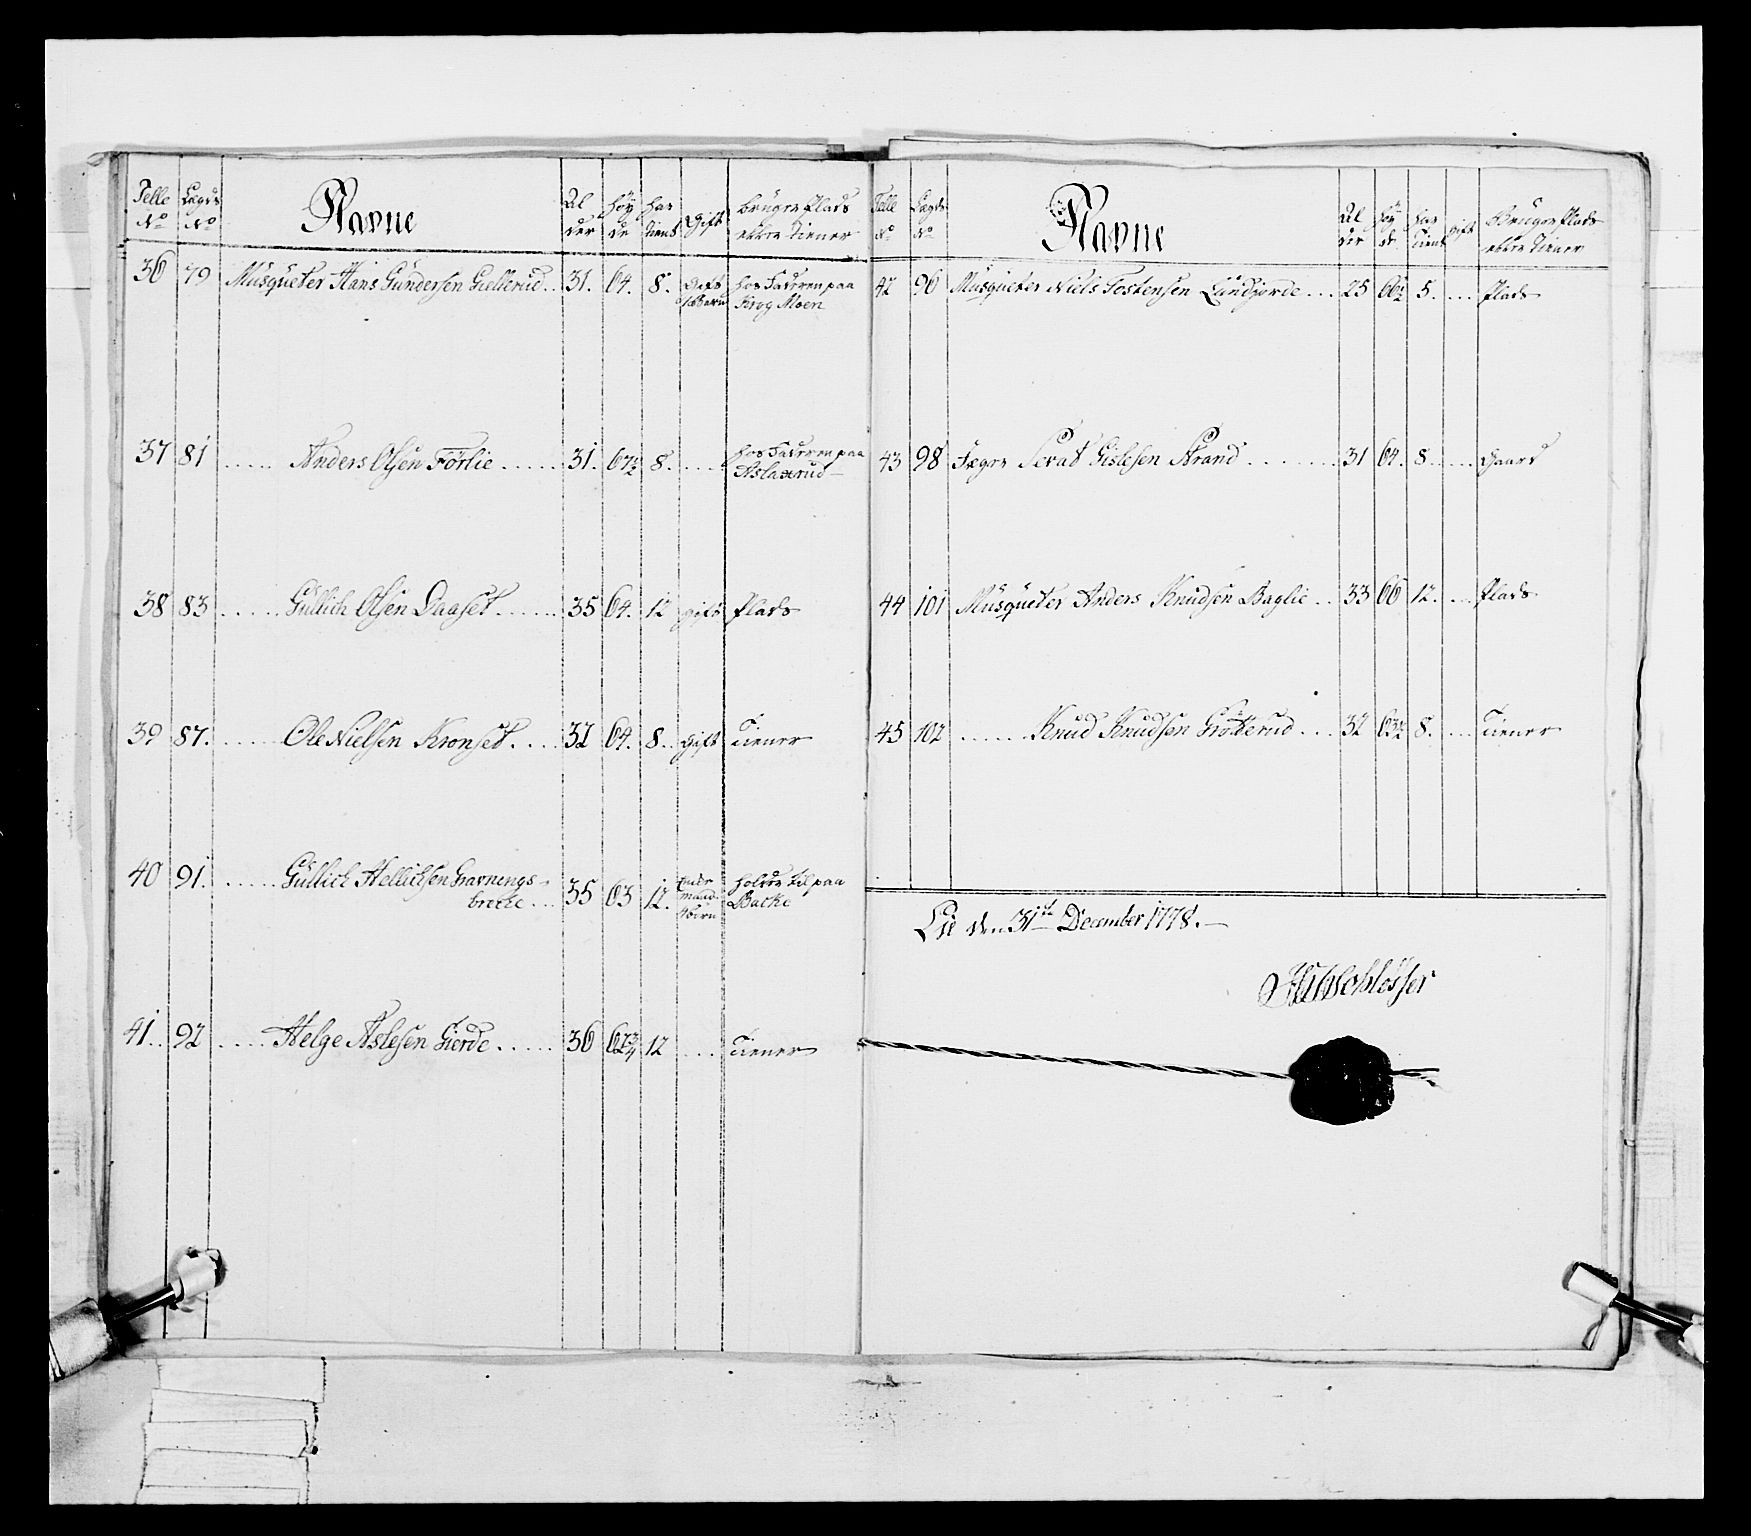 Telle No Lægds No Navne Al der Höy de Har tient Gift Bruger Plads eller tiener
36 79 Musqueter Hans Gundersen Gullerud .. 31. 64. 8. Gift 1 Barn hos Faderen paa
Krog Moen
37 81 ..... Anders Olsen Förlie ...... 31. 67½ 8. .... hos Faderen paa
Aslaxrud
38 83 ..... Gullich Olsen Daaset ...... 35 64. 12 gift Plads
39 87. ..... Ole Nielsen Kronset .... 32 64. 8.. Gift tiener
40 91. ..... Gullich Hellichsen Gravnings-
breche ... 35 63 12. Enke mand 4 börn holder til paa
Backe
41.. 92 ..... Helge Aslesen Gierde ..... 36 62¾ 12 .... tiener
Telle No Lægds No Navne Al der Höy de Har tient gift Bruger Plads eller tiener
42 96 Musqueter Niels Tostensen Lundjorde ... 25 66½ 5. .... Plads
43 98 Sevat Gislesen Strand ....... 31 64. 8. .... Gaard
44 101 Musqueter Anders Knudsen Baglie .. 33 66 12. .... Plads
45 102 ...... Knud Knudsen Gröterud ... 32 63½ 8. .... tiener
Lie den 31te December 1778.
Schlösser